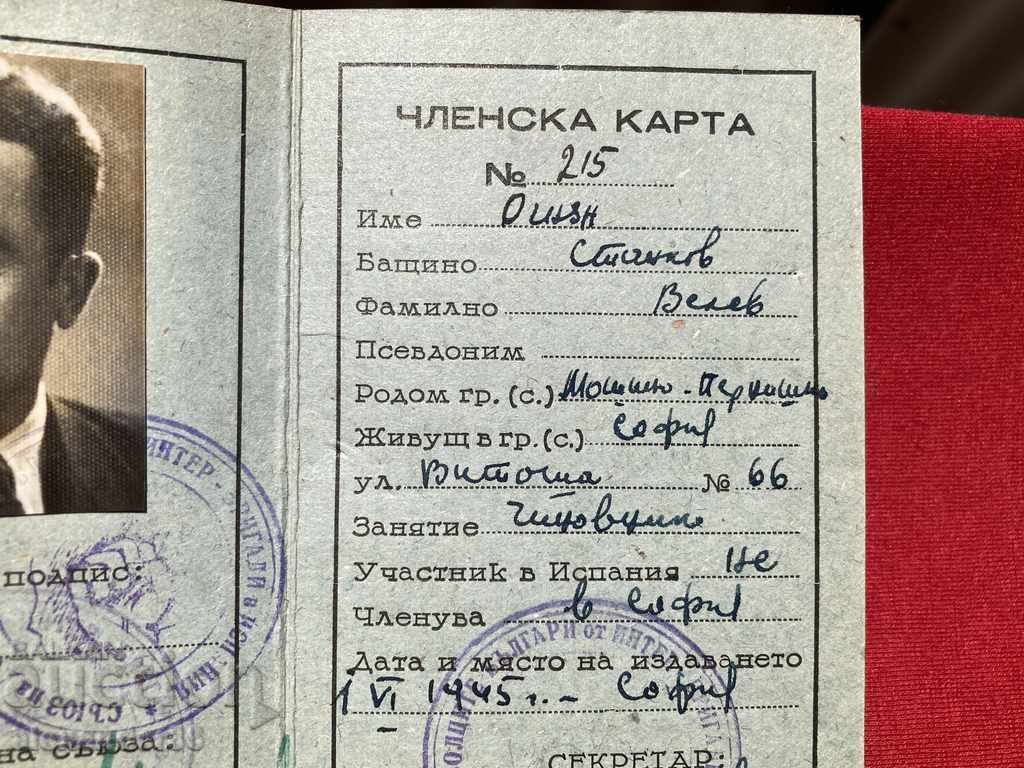 подпис:
на съюза:
ЧЛЕНСКА КАРТА
№ 215
Име
Бащино Станков
Фамилно Велев
Псевдоним
Родом гр. (с.)
Живущ в гр. (с.) София
ул. Витоша № 66
Занятие Чиновник
Участник в Испания Не
Членува в София
Дата и място на издаването
1 VI 1945 г. - София
БЪЛГАРИ от ИНТЕР
СЕКРЕТАР: